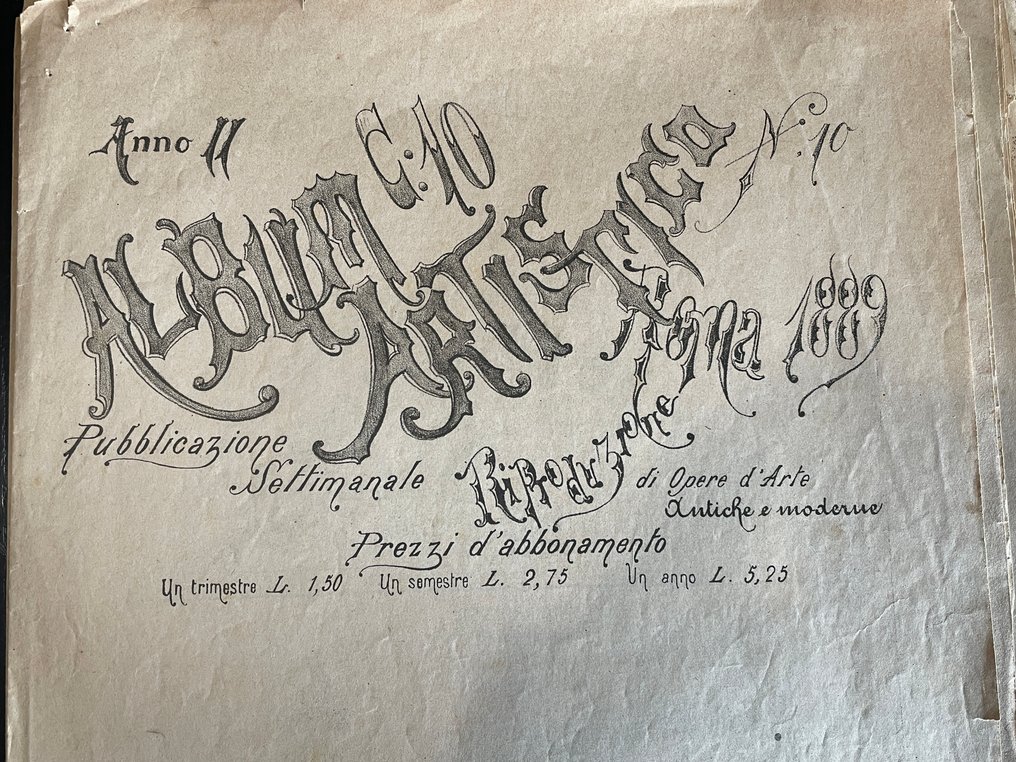 Anno II
C. 10
N. 10
ALBUM
ARTISTICO
Roma 1889
Pubblicazione
Settimanale
Riproduzione
di Opere d'Arte
Antiche e moderne
Prezzi d'abbonamento
Un trimestre L. 1,50 Un semestre L. 2,75 Un anno L. 5,25